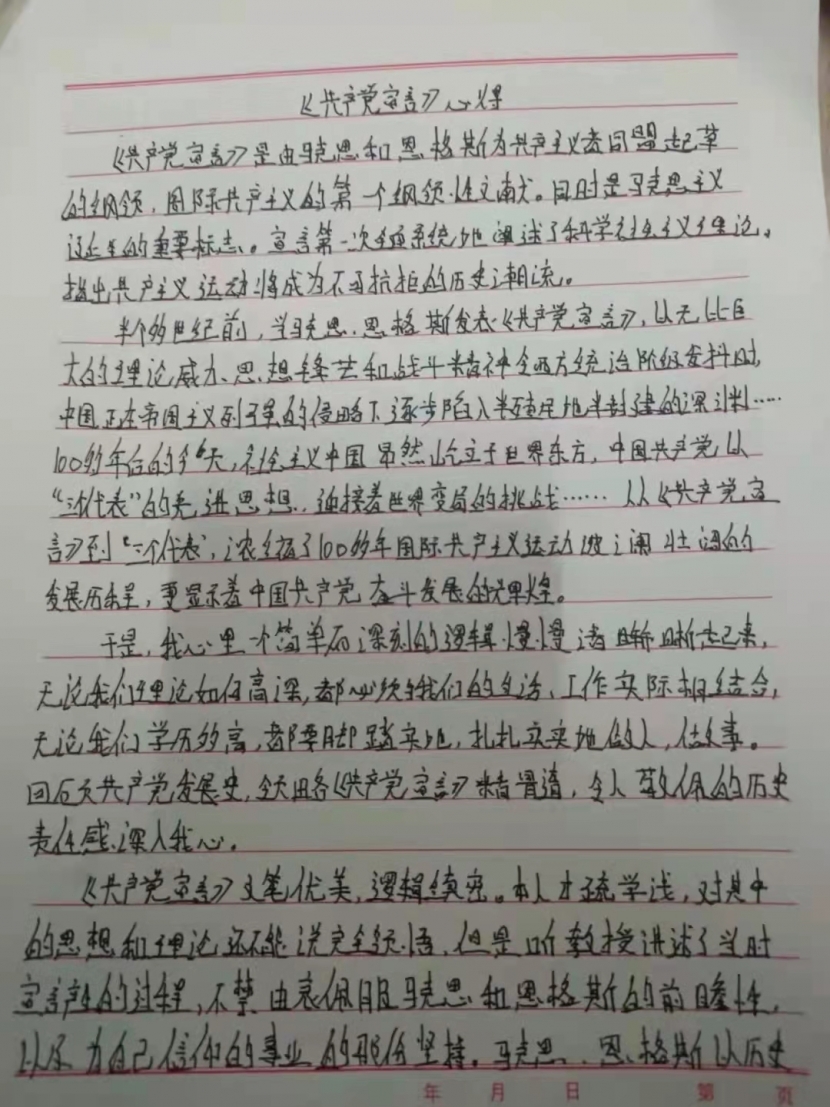 《共产党宣言》心得
《共产党宣言》是由马克思和恩格斯为共产主义者同盟起草
的纲领，国际共产主义的第一个纲领性文献。同时是马克思主义
诞生的重要标志。宣言第一次全面系统地阐述了科学社会主义理论。
指出共产主义运动将成为不可抗拒的历史潮流。
半个多世纪前，当马克思、恩格斯发表《共产党宣言》，以无比巨
大的理论威力、思想锋芒和战斗精神令西方统治阶级发抖时，
中国正在帝国主义列强的侵略下逐步陷入半殖民地半封建的深渊……
100多年后的今天，社会主义中国昂然屹立于世界东方，中国共产党以
“三个代表”的先进思想，迎接着世界变局的挑战……从《共产党宣
言》到“三个代表”，浓缩了100多年国际共产主义运动波澜壮阔的
发展历程，更显示着中国共产党奋斗发展的光辉。
于是，我心里一个简单而深刻的逻辑慢慢清晰起来，
无论我们理论如何高深，都必须与我们的生活、工作实际相结合，
无论我们学历多高，都要脚踏实地，扎扎实实地做人，做事。
回顾共产党发展史，《共产党宣言》精，令人敬佩的历史
责任感深入我心。
《共产党宣言》文笔优美，逻辑缜密。本人才疏学浅，对其中
的思想和理论还不能说完全领悟，但是听教授讲述了当时
宣言产生的过程，不禁由衷佩服马克思和恩格斯的前瞻性，
以及为自己信仰的事业的那份坚持。马克思、恩格斯以历史
年 月 日 第 页